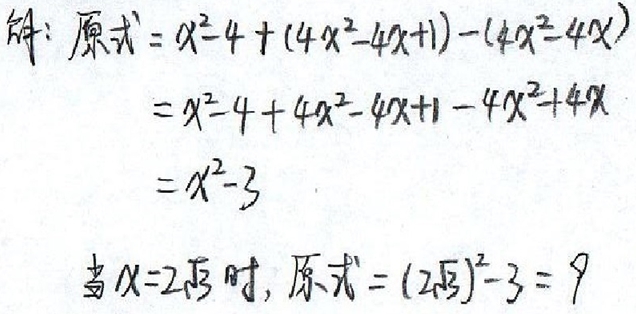 解: 原式 = x²-4+(4x²-4x+1)-(4x²-4x)
= x²-4+4x²-4x+1-4x²+4x
= x²-3
当x=2√3时, 原式=(2√3)²-3=9